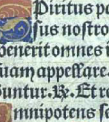 Spiritus po
sus nostro
benerit omnes i
uam appellare.
suntur. R. Et re
mnipotens s